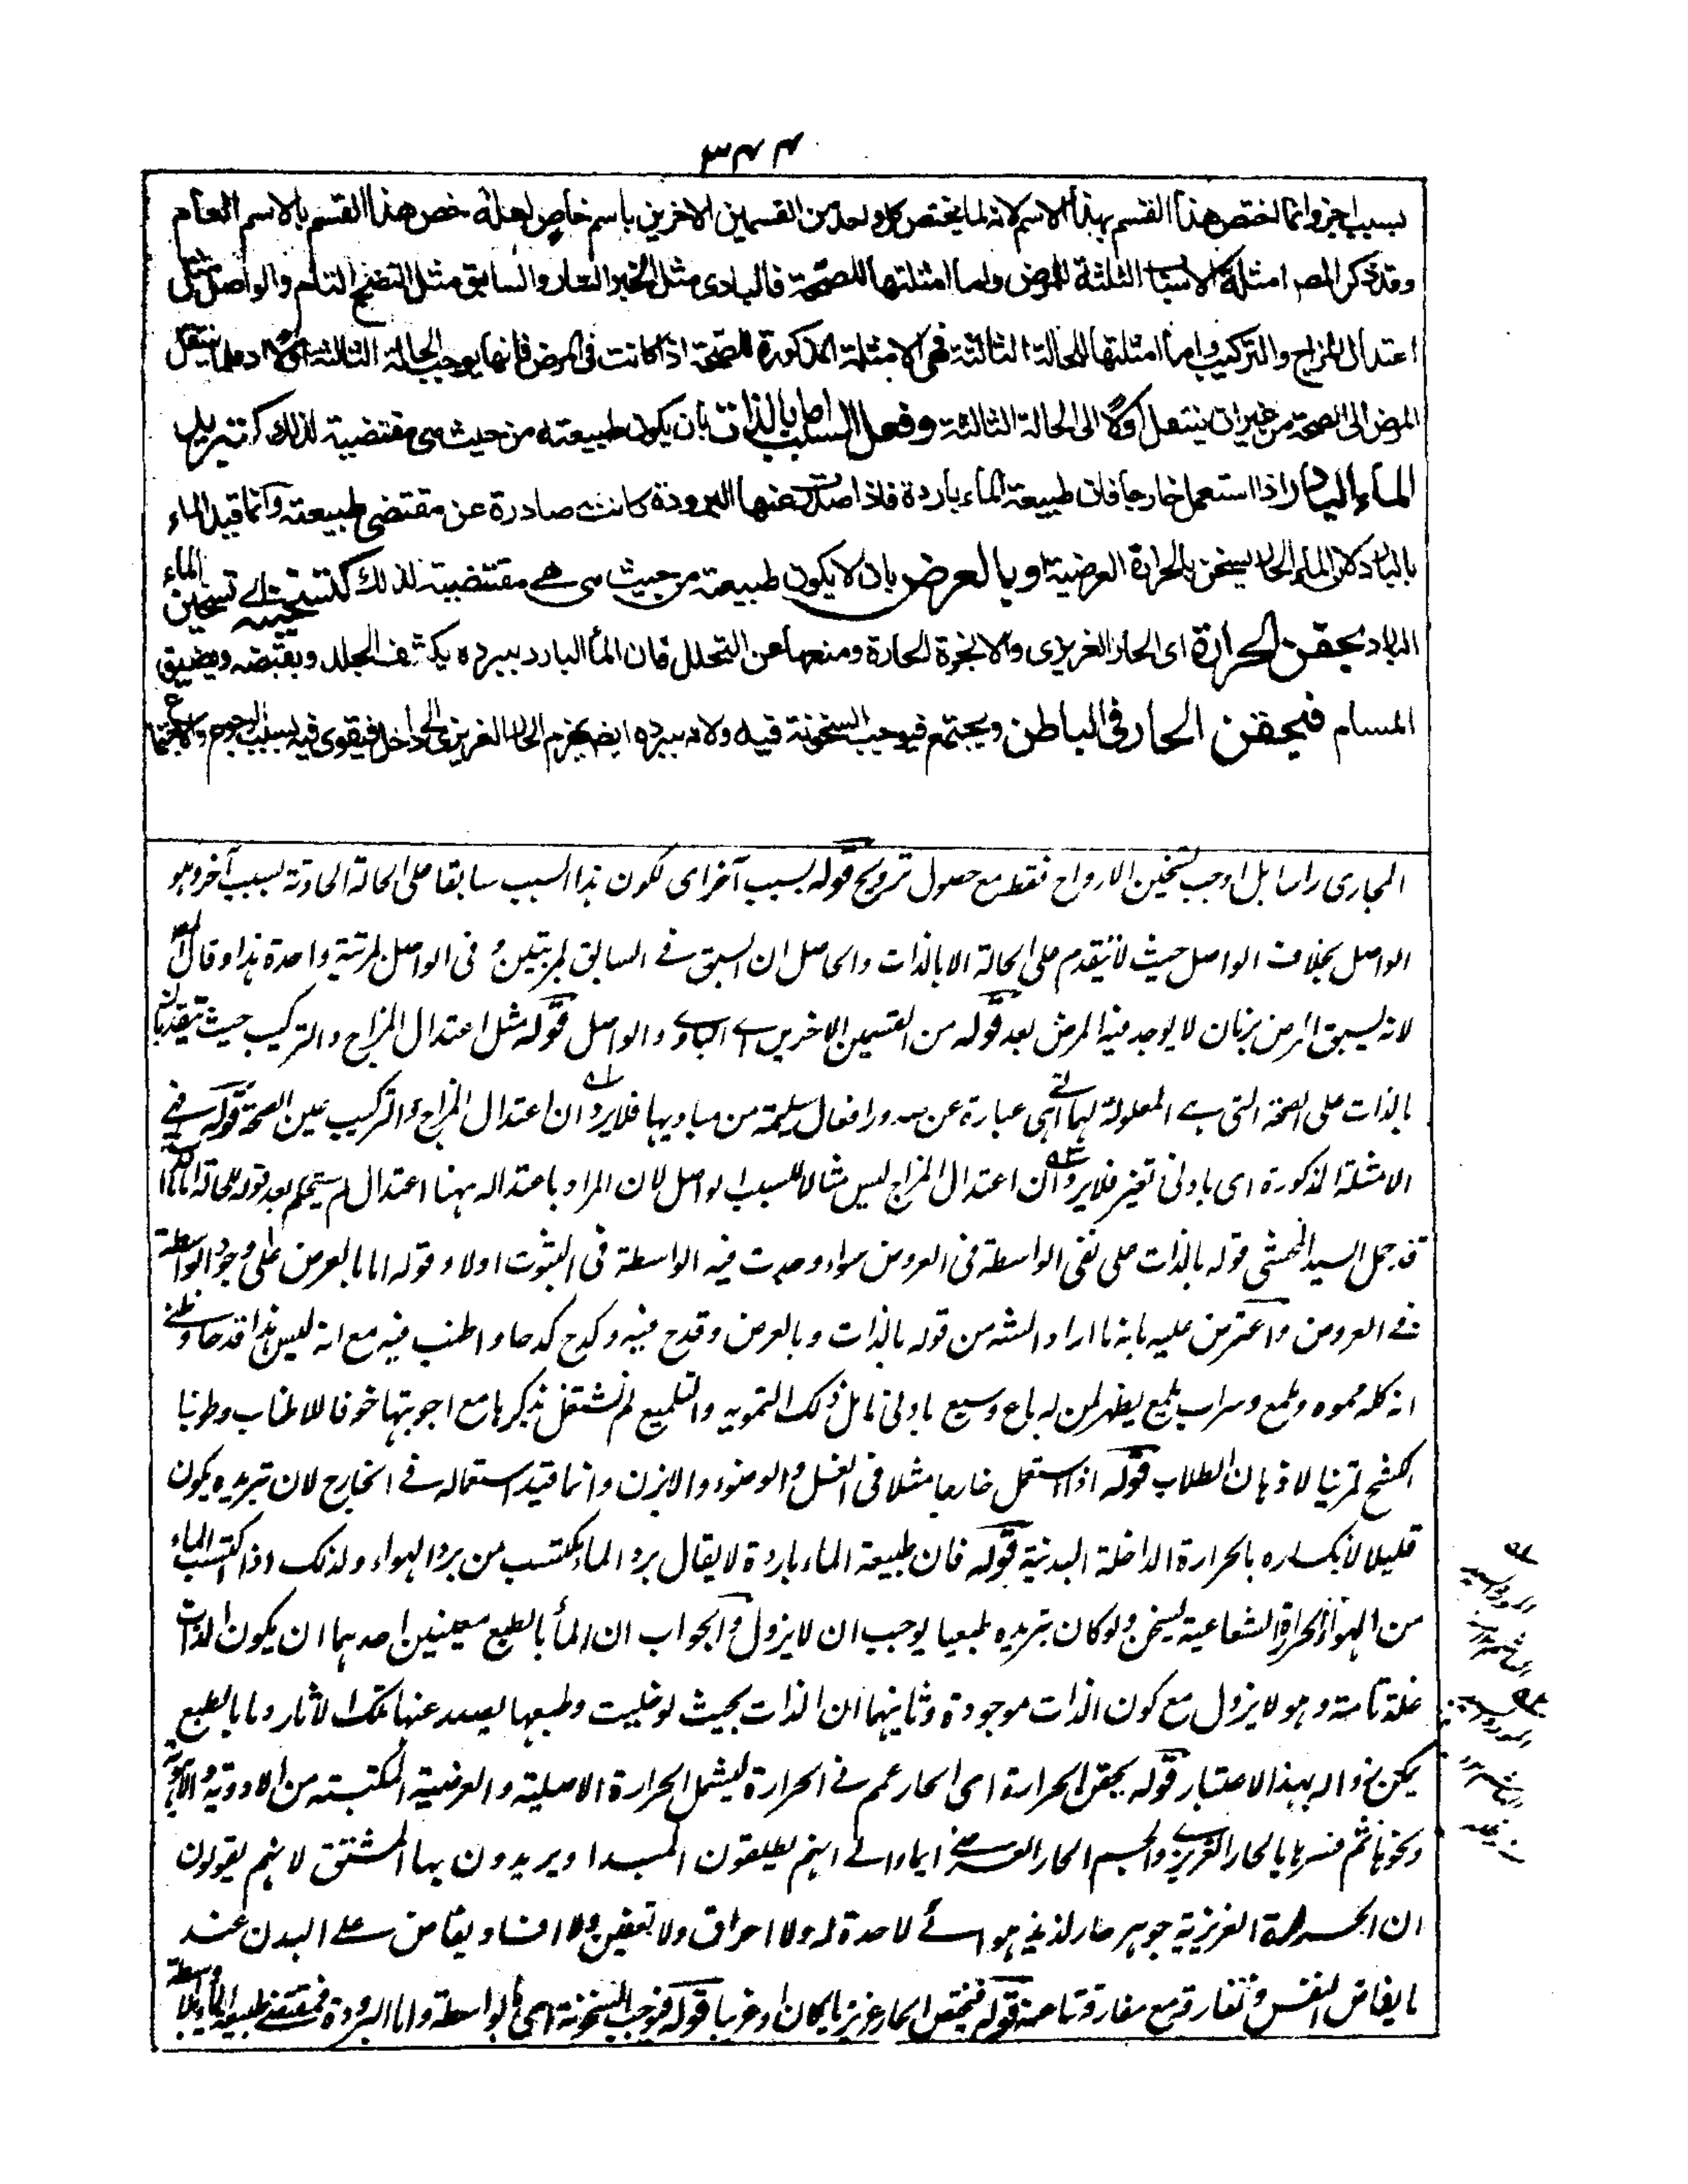 ٣٤٤
بسبب اخر وانما اختص هذا القسم بهذا الاسم لانه لما يختص كل واحد من القسمين الاخرين باسم خاص لعله خص هذا القسم بالاسم العام
وقد ذكر المصر امثلة الاسباب الثلثة للمرض واما امثلتها للصحة فالبادى مثل الخبر السار والسابق مثل النضج التام والواصل مثل
اعتدال المزاج والتركيب واما امثلتها للحالة الثالثة فهى الامثلة المذكورة للصحة اذا كانت فى المرض فانها يوجب الحالة الثالثة اولا اد قلما ينتقل
المرض الى الصحة من غير ان ينتقل اولا الى الحالة الثالثة وفعل السبب اما بالذات بان يكون طبيعته من حيث هى مقتضية لذلك كتبريد
الماء البارد اذا استعمل خارجا فان طبيعة الماء باردة فاذا صدرت عنها البرودة كانت صادرة عن مقتضى طبيعته وانما قيد الماء
بالبارد لان الماء الحار يسخن بالحرارة العرضية او بالعرض بان لا يكون طبيعته من حيث هى هے مقتضية لذلك كتسخينه اے تسخين الماء
البارد بحقن الحرارة اى الحار الغريزى والابخرة الحارة ومنعها عن التحلل فان الماء البارد ببرده يكثف الجلد ويقبضه ويضيق
المسام فيحقن الحار فى الباطن ويجتمع فيوجب السخونة فيه ولانه ببرده ايضا يهزم الحار الغريزى الى داخل فيقوى فيه بسبب الرجوع والاجتماع
المجارى راسا بل اوجب تسخين الارواح فقط مع حصول ترويح قوله بسبب آخر اى لكون هذا السبب سابقا على الحالة الحادثة بسبب آخر وهو
الواصل بخلاف الواصل حيث لا يتقدم على الحالة الا بالذات والحاصل ان السبق فے السابق بمرتبتين و فى الواصل بمرتبة واحدة هذا وقال
لانه يسبق المرض بزمان لا يوجد فيه المرض بعد قوله من القسمين الاخرين اے البادے والواصل قوله مثل اعتدال المزاج والتركيب حيث يتقدمان
بالذات على الصحة التى هے المعلولة لهما اى هى عبارة عن صدور افعال سليمة من مباديها فلا يرد ان اعتدال المزاج والتركيب عين الصحة قوله فهے
الامثلة المذكورة اى بادنى تغير فلا يرد ان اعتدال المزاج ليس مثالا للسبب الواصل لان المراد باعتداله ههنا اعتدال لم يستحكم بعد قوله
قد حمل السيد المحشى قوله بالذات على نفى الواسطة فى العروض سواء وجدت فيه الواسطة فى الثبوت اولا وقوله اما بالعرض على وجود الواسطة
فے العروض واعترض عليه بانه ما اراد الشه من قوله بالذات وبالعرض وقدح فيه وكدح كدحا واطنب فيه مع انه ليس هذا قدحا وظنے
انه كله مموه وملمع وسراب يلمع يظهر لمن له باع وسيع بادنى تامل ذلك التمويه والتلميع لم نشتغل بذكرها مع اجوبتها خوفا للاطناب وطوينا
الكشح تمرينا لاذهان الطلاب قوله اذا استعمل خارجا مثلا فى الغسل والوضوء والابزن وانما قيد استعماله فے الخارج لان تبريده يكون
قليلا لانكساره بالحرارة الداخلة البدنية قوله فان طبيعة الماء باردة لا يقال برد الماء مكتسب من برد الهواء ولذلك اذا اكتسب الماء
من الهواء الحرارة الشعاعية ليسخن ولو كان تبريده طبعيا يوجب ان لا يزول والجواب ان الماء بالطبع معنيين احدهما ان يكون الذات
علة تامة وهو لا يزول مع كون الذات موجودة وثانيها ان الذات بحيث لو خليت وطبعها يصدر عنها تلك الاثار وما بالطبع
يمكن زواله بهذا الاعتبار قوله بحقن الحرارة اى الحار عمم فے الحرارة ليشمل الحرارة الاصلية والعرضية المكتسبة من الادوية والاغذية
ونحوها ثم فسرها بالحار الغريزے والجسم الحار العرضے ايماء الے انهم يطلقون المبدا ويريدون بها المشتق لانهم يقولون
ان الحرارة الغريزية جوهر حار لذيذ هوائے لا حدة له ولا احراق ولا تعفين ولا افساد يفاض علے البدن عند
ما يفاض النفس وتفارقه مع مفارقتها عنه قوله فيحقن الحار غريزيا كان او غريبا قوله فيوجب السخونة اى بالواسطة واما البرودة فمقتضے طبيعة الماء بلا واسطة